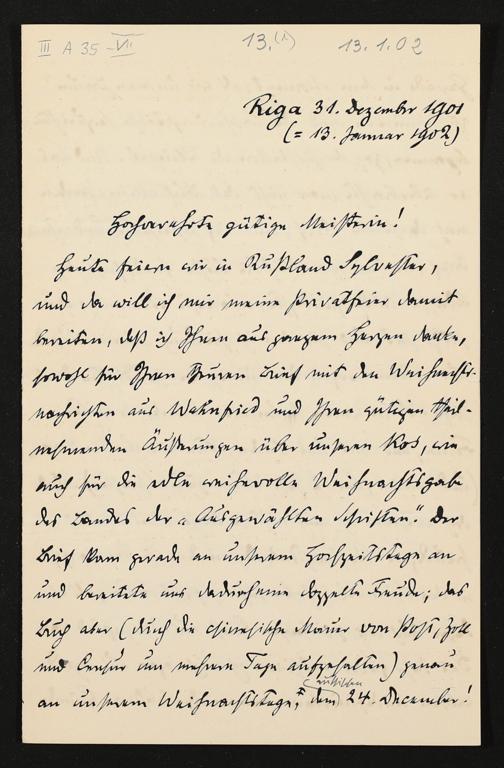 III A 35 - VII
13.(1)
13.1.02
Riga 31. Dezember 1901
(= 13. Januar 1902)
Hochverehrte gütige Meisterin!
Heute feiern wir in Rußland Sylvester,
und da will ich mir meine Privatfeier damit
bereiten, daß ich Ihnen aus ganzem Herzen danke,
sowohl für Ihren theuren Brief mit den Weihnachts-
nachrichten aus Wahnfried und Ihren gütigen theil-
nehmenden Äußerungen über unseren Kos, wie
auch für die edle weihevolle Weihnachtsgabe
des Bandes der „Ausgewählten Schriften". Der
Brief kam gerade an unserem Hochzeitstage an
und bereitete uns dadurch eine doppelte Freude; das
Buch aber (durch die chinesische Mauer von Post, Zoll
und Censur um mehrere Tage aufgehalten) genau
an unserem Weihnachtstage, dem russischen 24. December!